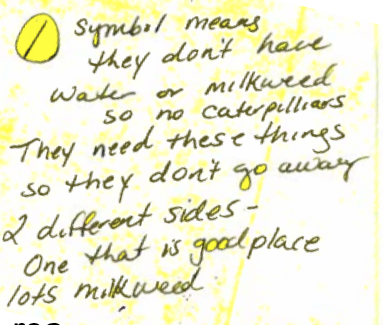 symbol means
they don't have
water or milkweed
so no caterpilliars
They need these things
so they don't go away
2 different sides -
One that is good place
lots milkweed